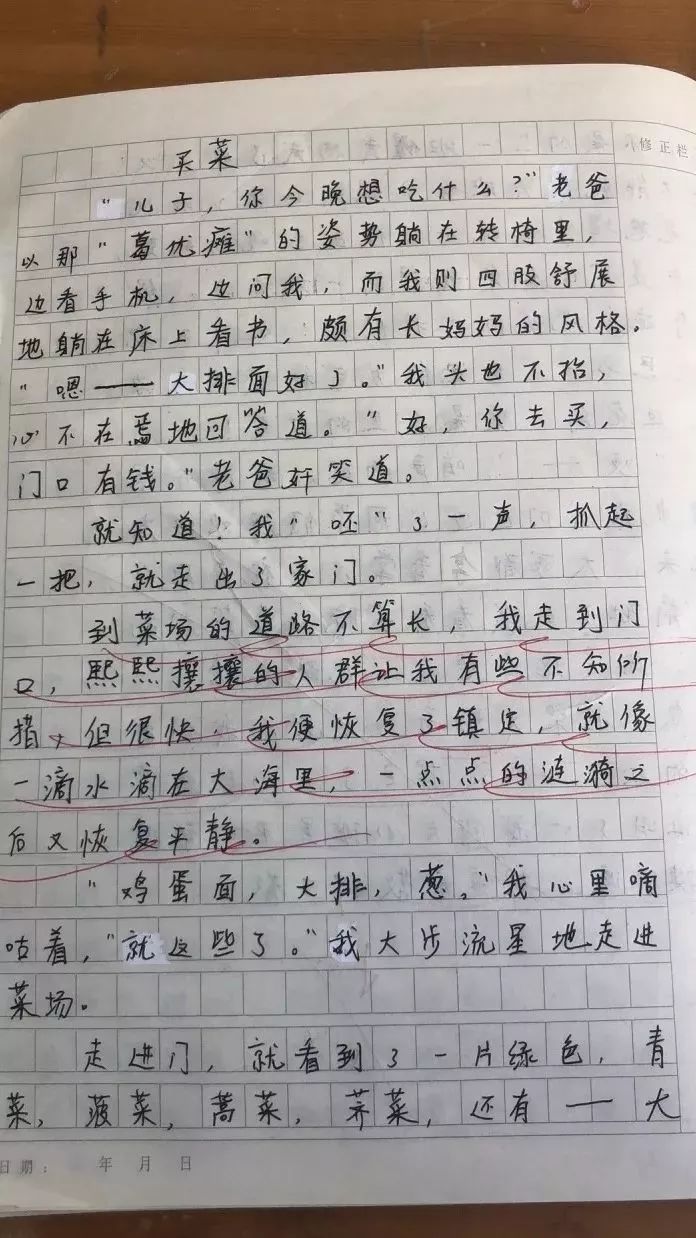 修正栏
买菜
"儿子，你今晚想吃什么？"老爸
以那"葛优瘫"的姿势躺在转椅里，
边看手机，边问我，而我则四肢舒展
地躺在床上看书，颇有长妈妈的风格。
"嗯——大排面好了。"我头也不抬，
心不在焉地回答道。"好，你去买，
门口有钱。"老爸奸笑道。
就知道！我"呸"了一声，抓起
一把，就走出了家门。
到菜场的道路不算长，我走到门
口，熙熙攘攘的人群让我有些不知所
措，但很快，我便恢复了镇定，就像
一滴水滴在大海里，一点点的涟漪之
后又恢复平静。
"鸡蛋面，大排，葱。"我心里嘀
咕着，"就这些了。"我大步流星地走进
菜场。
走进门，就看到了一片绿色，青
菜，菠菜，蒿菜，荠菜，还有——大
日期： 年 月 日